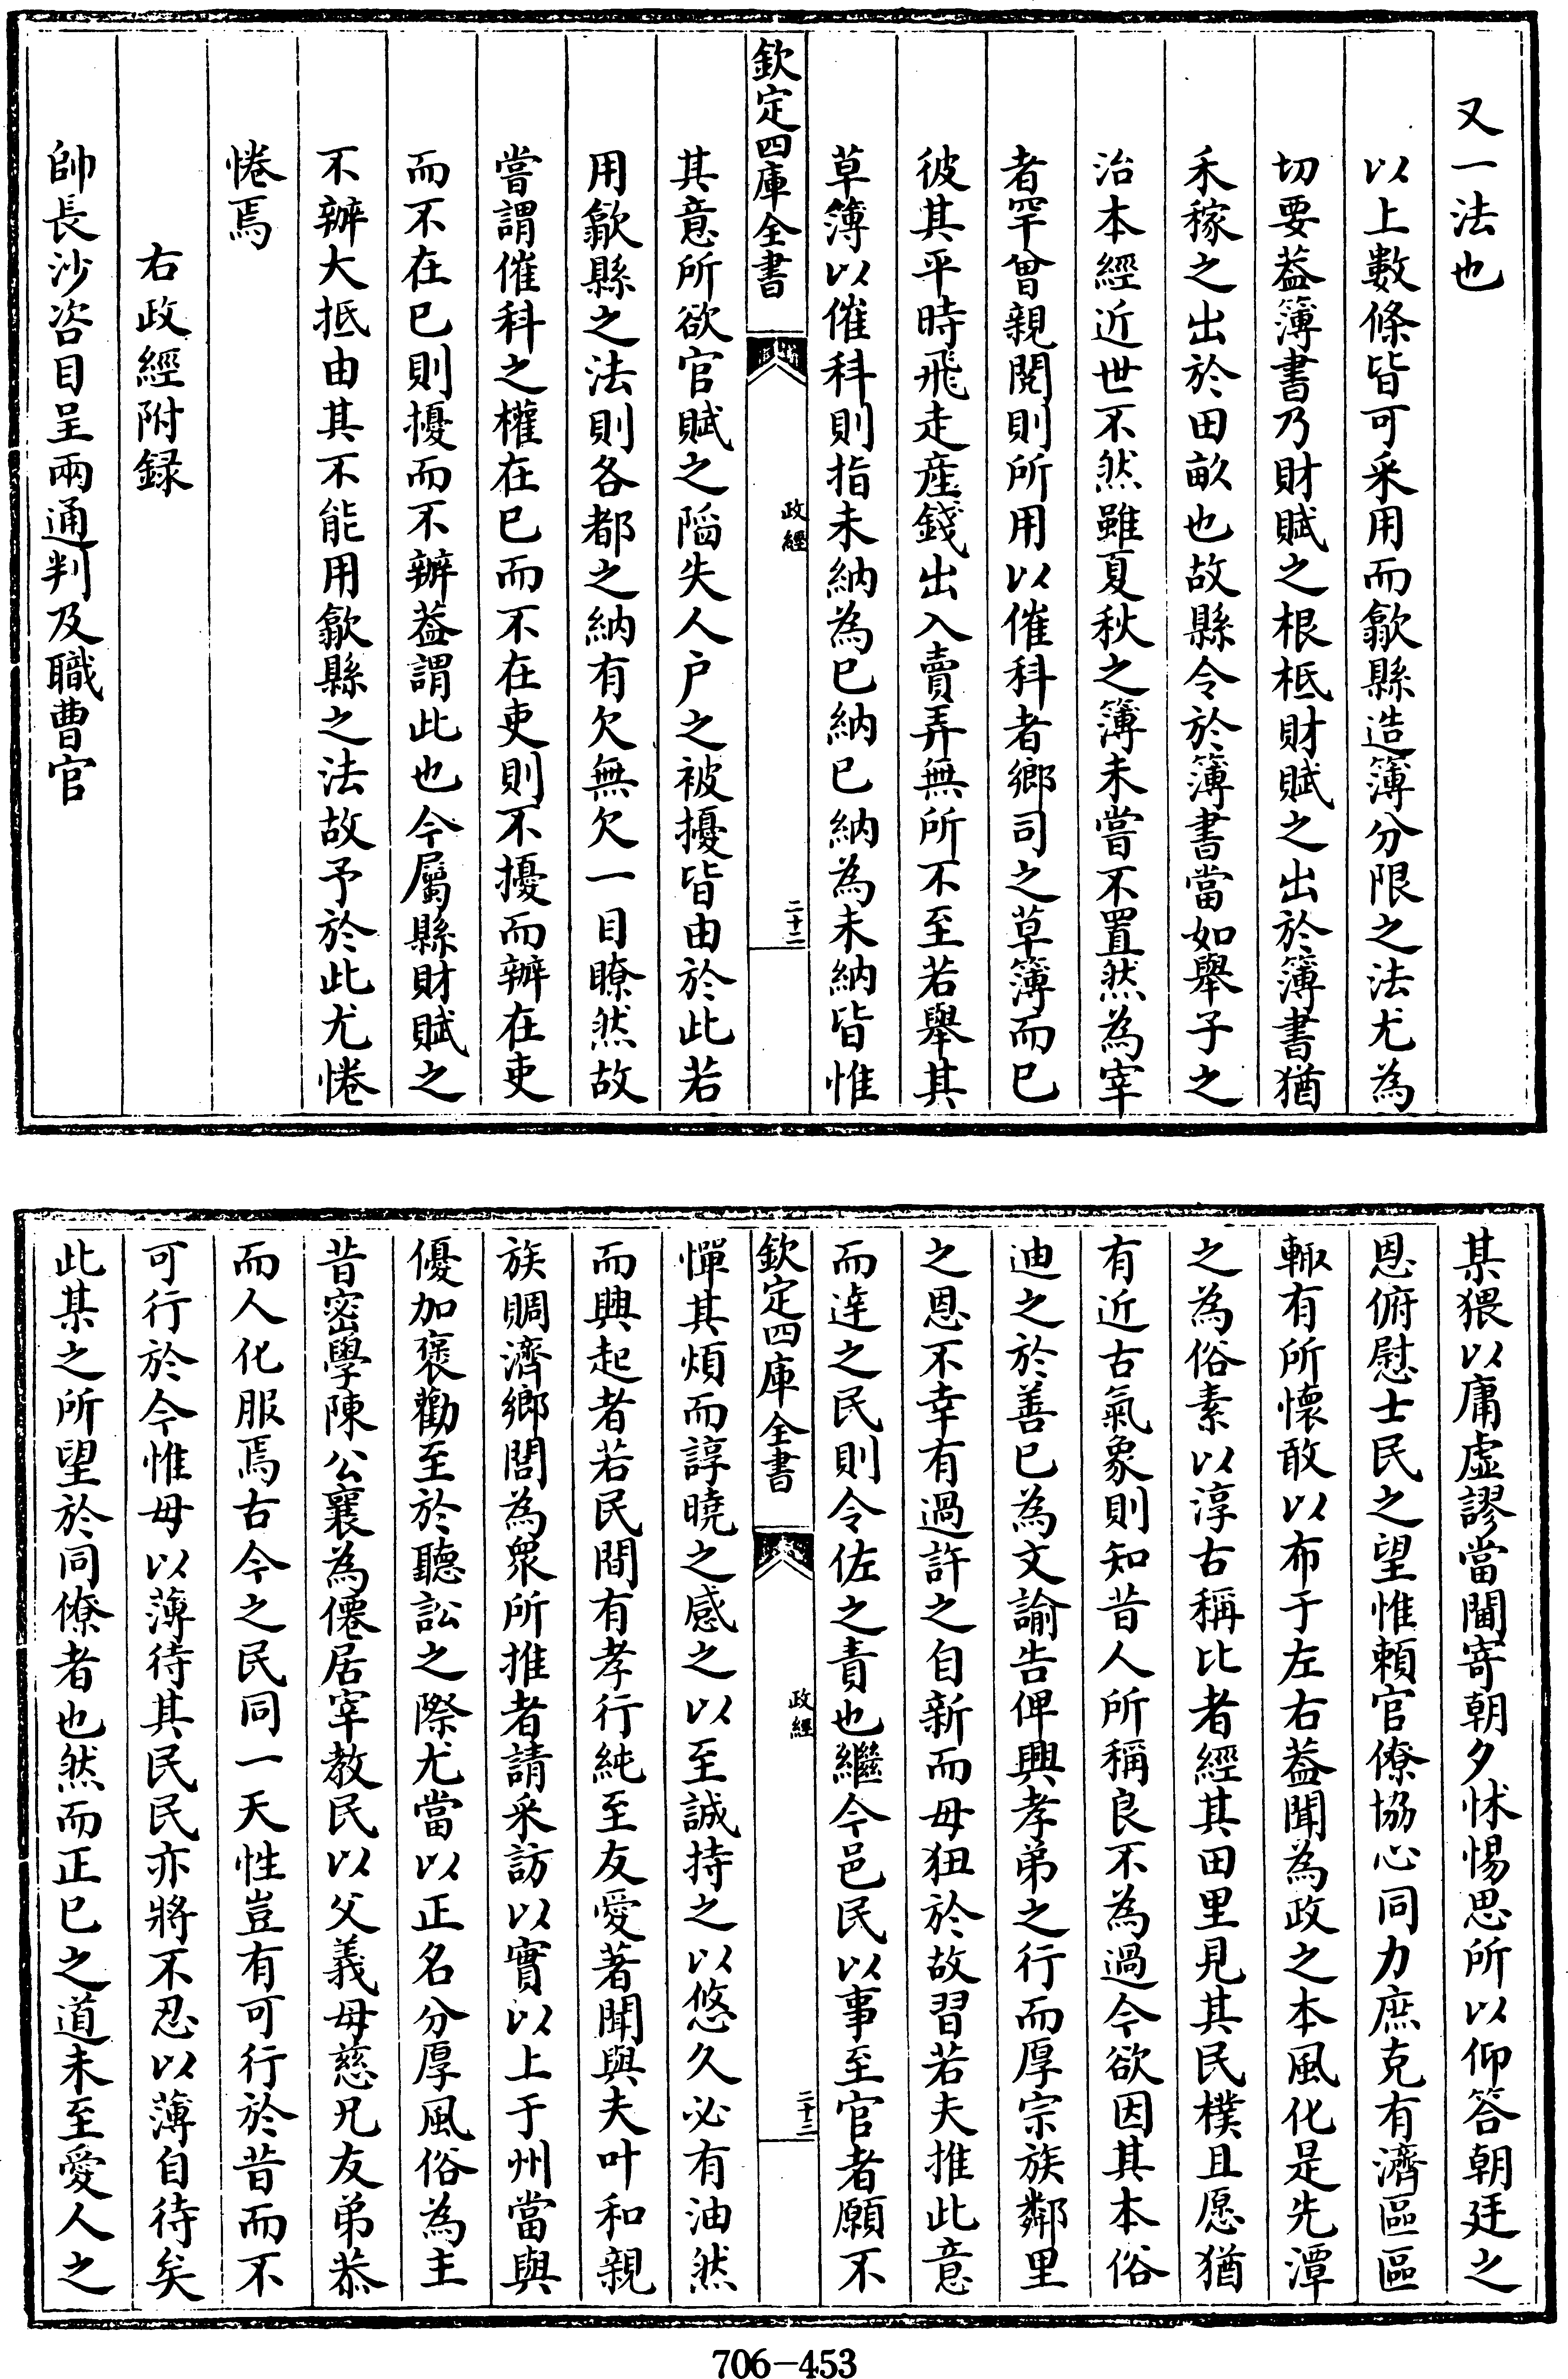 又一法也
以上數條皆可采用而歙縣造簿分限之法尤為
切要葢簿書乃財賦之根柢財賦之出於簿書猶
禾稼之出於田畝也故縣令於簿書當如舉子之
治本經近世不然雖夏秋之簿未嘗不置然為宰
者罕曾親閱則所用以催科者鄉司之草簿而已
彼其平時飛走產錢出入賣弄無所不至若舉其
草簿以催科則指未納為已納已納為未納皆惟
欽定四庫全書
政經
二十二
其意所欲官賦之陷失人户之被擾皆由於此若
用歙縣之法則各都之納有欠無欠一目瞭然故
嘗謂催科之權在已而不在吏則不擾而辦在吏
而不在已則擾而不辦葢謂此也今屬縣財賦之
不辦大抵由其不能用歙縣之法故予於此尤惓
惓焉
右政經附録
帥長沙咨目呈兩通判及職曹官
某猥以庸虛謬當閫寄朝夕怵惕思所以仰答朝廷之
恩俯慰士民之望惟頼官僚協心同力庶克有濟區區
輙有所懷敢以布于左右葢聞為政之本風化是先潭
之為俗素以淳古稱比者經其田里見其民樸且愿猶
有近古氣象則知昔人所稱良不為過今欲因其本俗
迪之於善已為文諭告俾興孝弟之行而厚宗族鄰里
之恩不幸有過許之自新而毋狃於故習若夫推此意
而達之民則令佐之責也繼今邑民以事至官者願不
欽定四庫全書
政經
二十三
憚其煩而諄曉之感之以至誠持之以悠久必有油然
而興起者若民間有孝行純至友愛著聞與夫叶和親
族賙濟鄉閭為衆所推者請采訪以實以上于州當與
優加襃勸至於聽訟之際尤當以正名分厚風俗為主
昔密學陳公襄為僊居宰教民以父義母慈兄友弟恭
而人化服焉古今之民同一天性豈有可行於昔而不
可行於今惟毋以薄待其民民亦將不忍以薄自待矣
此某之所望於同僚者也然而正已之道未至愛人之
706-453